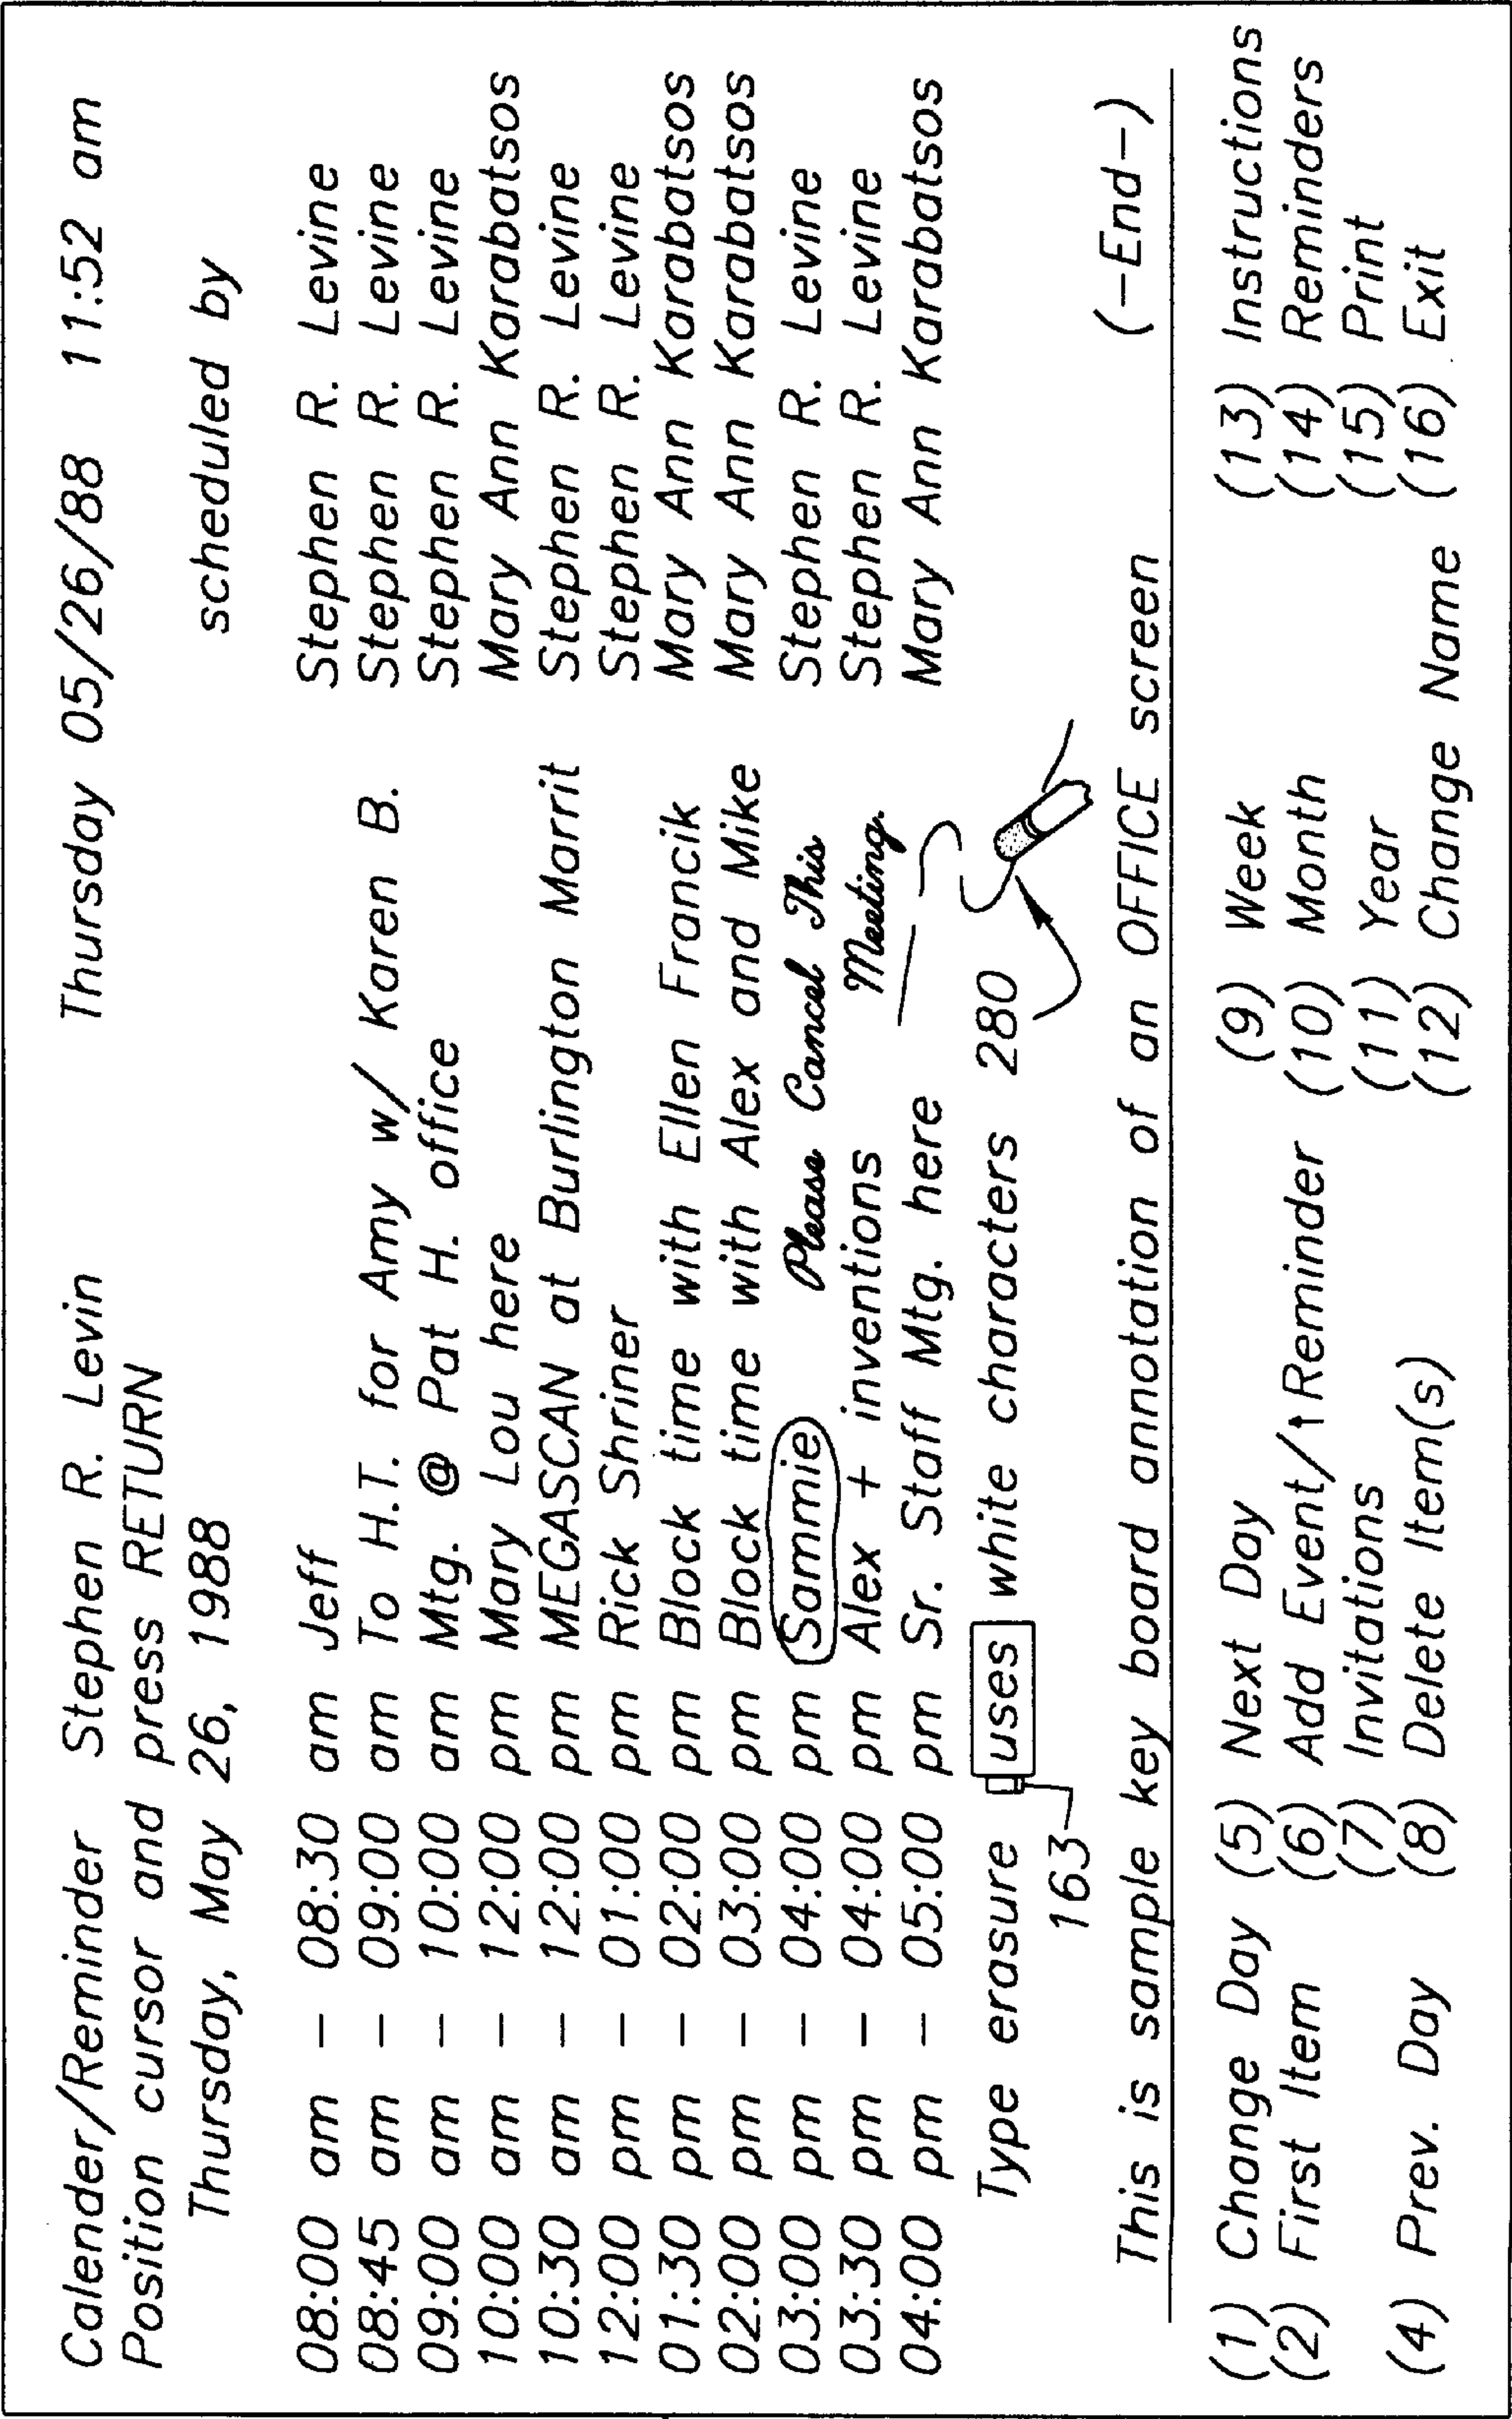 Calender/Reminder Stephen R. Levin Thursday 05/26/88 11:52 am
Position cursor and press RETURN
Thursday, May 26, 1988 scheduled by
08:00 am - 08:30 am Jeff Stephen R. Levine
08:45 am - 09:00 am To H.T. for Amy w/ Karen B. Stephen R. Levine
09:00 am - 10:00 am Mtg. @ Pat H. office Stephen R. Levine
10:00 am - 12:00 pm Mary Lou here Mary Ann Karabatsos
10:30 am - 12:00 pm MEGASCAN at Burlington Marrit Stephen R. Levine
12:00 pm - 01:00 pm Rick Shriner Stephen R. Levine
01:30 pm - 02:00 pm Block time with Ellen Francik Mary Ann Karabatsos
02:00 pm - 03:00 pm Block time with Alex and Mike Mary Ann Karabatsos
03:00 pm - 04:00 pm Sammie Please Cancel This Stephen R. Levine
03:30 pm - 04:00 pm Alex + inventions Meeting. Stephen R. Levine
04:00 pm - 05:00 pm Sr. Staff Mtg. here Mary Ann Karabatsos
Type erasure uses white characters 280
163
This is sample key board annotation of an OFFICE screen (-End-)
(1) Change Day (5) Next Day (9) Week (13) Instructions
(2) First Item (6) Add Event/↑Reminder (10) Month (14) Reminders
(7) Invitations (11) Year (15) Print
(4) Prev. Day (8) Delete Item(s) (12) Change Name (16) Exit